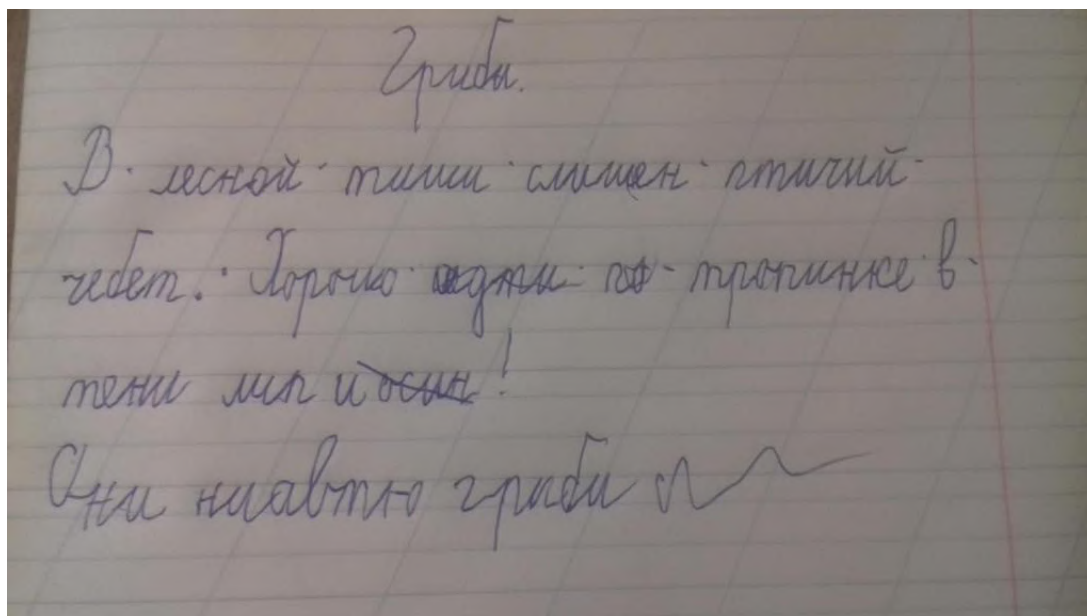 Грибы.
В лесной тиши слишен птичий
чебет. Хорошо идти по тропинке в
тени лип и осин!
Они грыби